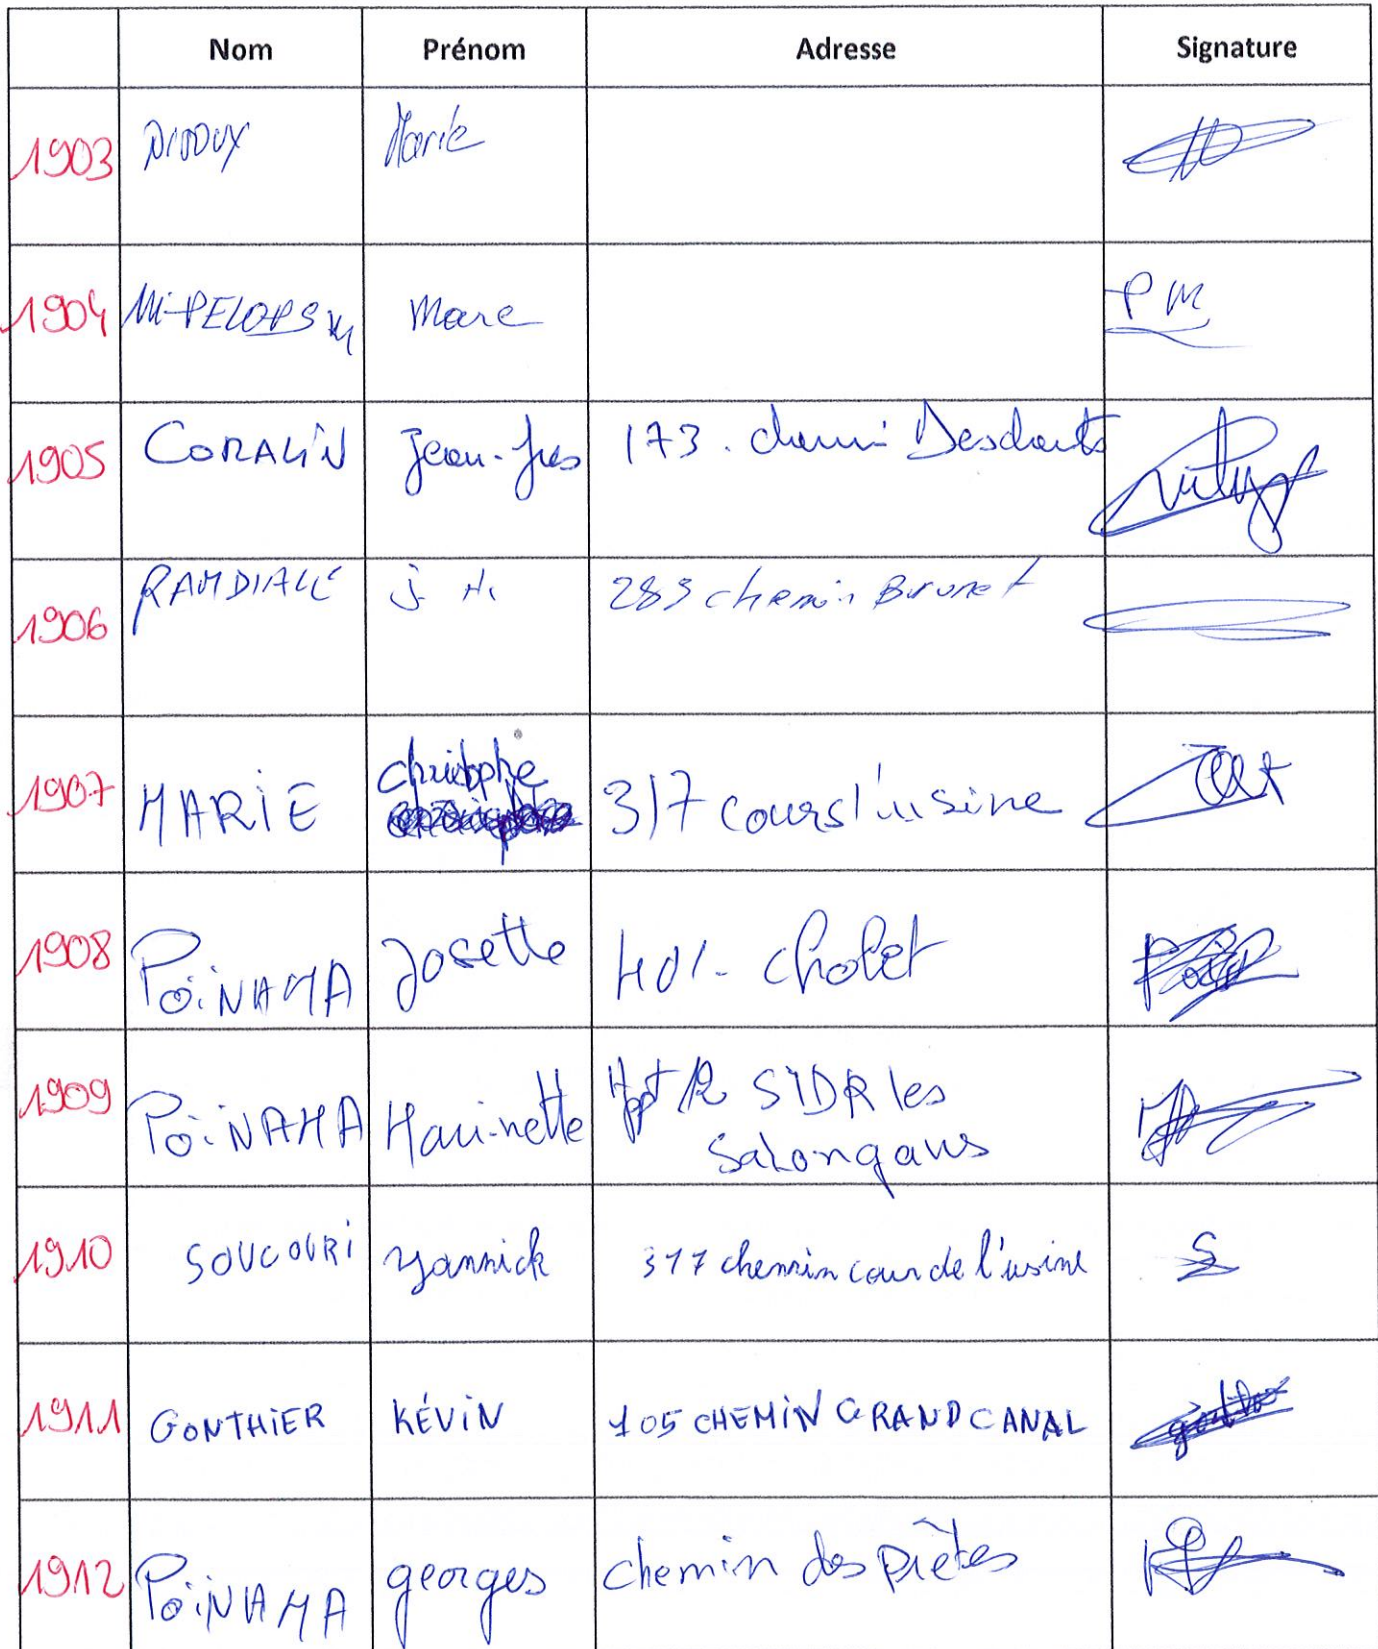 Nom Prénom Adresse Signature
1903 Marie
1904 Mi-PELOPS Marc PM
1905 CORALIN Jean-Yves 173. chemin Deschants
1906 RAMDIALE J. H. 283 chemin Brunet
1907 MARIE christophe 317 cours l'usine
1908 POiNAMA Josette 401- cholet
1909 POiNAMA Marinette Appt 12 SIDR les
Salonganes
1910 SOUCOURi yannick 317 chemin cour de l'usine S
1911 GONTHiER KÉViN 105 CHEMiN GRAND CANAL
1912 POiNAMA georges chemin des prêtes